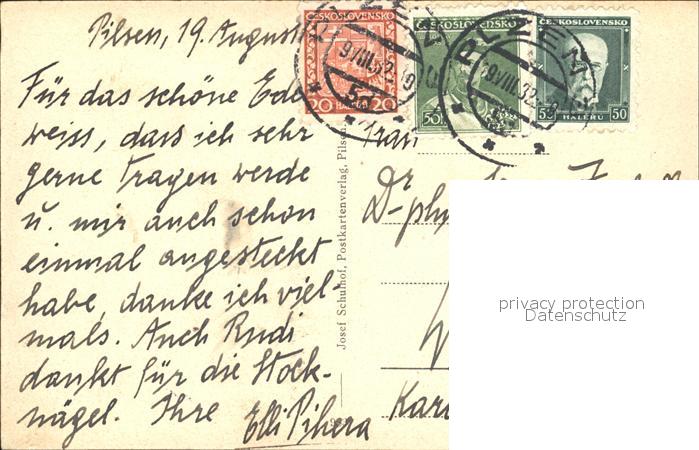 Pilsen, 19. August
Für das schöne Edel
weiss, dass ich sehr
gerne tragen werde
u. mir auch schon
einmal angesteckt
habe, danke ich viel-
mals. Auch Rudi
dankt für die Stock-
nägel. Ihre
Elli Pihera
ČESKOSLOVENSKO
20 HALÉŘŮ 20
ČESKOSLOVENSKO
50
ČESKOSLOVENSKO
50 HALÉŘŮ 50
PLZEŇ
19/VIII.32
PLZEŇ
19/VIII.32
Josef Schulhof, Postkartenverlag, Pilsen
Frau
Dr
D-phy
privacy protection
Datenschutz